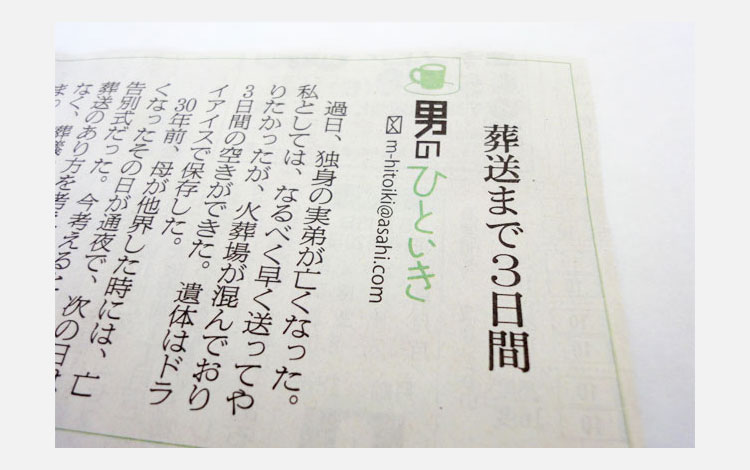 葬送まで3日間
男のひといき
m-hitoiki@asahi.com
過日、独身の実弟が亡くなった。
私としては、なるべく早く送ってや
りたかったが、火葬場が混んでおり
3日間の空きができた。遺体はドラ
イアイスで保存した。
30年前、母が他界した時には、亡
くなったその日が通夜で、次の日は
告別式だった。今考えると
葬送のあり方を考え
なく、葬儀